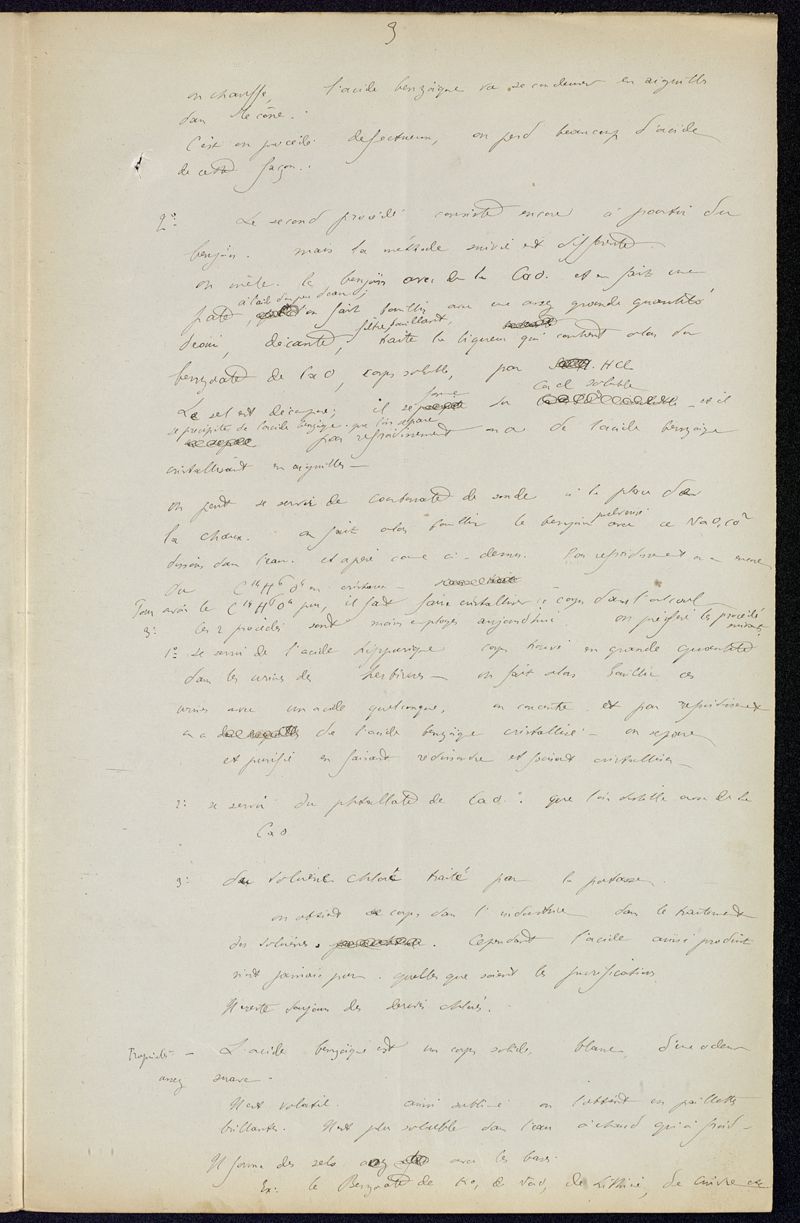 9
on chauffe, l'acide benzoique va se condenser en aiguilles
dans le cône.
C'est un procédé défectueux, on perd beaucoup d'acide
de cette façon.
2° Le second procédé consiste encore à partir du
benjoin. mais la méthode suivie est différente
on mêle le benjoin avec de la CaO. et on fait une
pâte, à l'aide d'un peu d'eau; on fait bouillir avec une assez grande quantité
d'eau, décante, filtre bouillant, traite la liqueur qui contient alors du
benzoate de CaO, corps soluble, par HCl
Le sel est décomposé; il se forme du CaCl soluble et il
se précipite de l'acide benzoique que l'on sépare
par refroidissement on a de l'acide benzoique
cristallisant en aiguilles —
on peut se servir de carbonate de soude à la place de
la chaux. on fait alors bouillir le benjoin pulvérisé avec ce NaO,CO²
dissous dans l'eau. et opère comme ci-dessus. Par refroidissement on a encore
du C¹⁴H⁶O⁴ en cristaux —
Pour avoir le C¹⁴H⁶O⁴ pur, il faut faire cristalliser ce corps dans l'alcool
3° Ces 2 procédés sont moins employés aujourd'hui. on préfère les procédés
suivants
1° se servir de l'acide hippurique corps trouvé en grande quantité
dans les urines des herbivores — on fait alors bouillir ces
urines avec un acide quelconque, on concentre et par refroidissement
on a de l'acide benzoique cristallisé — on sépare
et purifie en faisant redissoudre et faisant cristalliser —
2° se servir du phtallate de CaO. que l'on distille avec de la
CaO
3° du toluène chloré traité par la potasse.
on obtient ce corps dans l'industrie dans le traitement
des toluènes. Cependant l'acide ainsi produit
n'est jamais pur. quelles que soient les purifications
Il reste toujours des dérivés chlorés.
Propriétés — L'acide benzoique est un corps solide, blanc, d'une odeur
assez suave.
Il est volatil. ainsi sublimé on l'obtient en paillettes
brillantes. Il est plus soluble dans l'eau à chaud qu'à froid —
Il forme des sels avec les bases.
Ex: le Benzoate de KO, de NaO, de Lithine, de cuivre etc